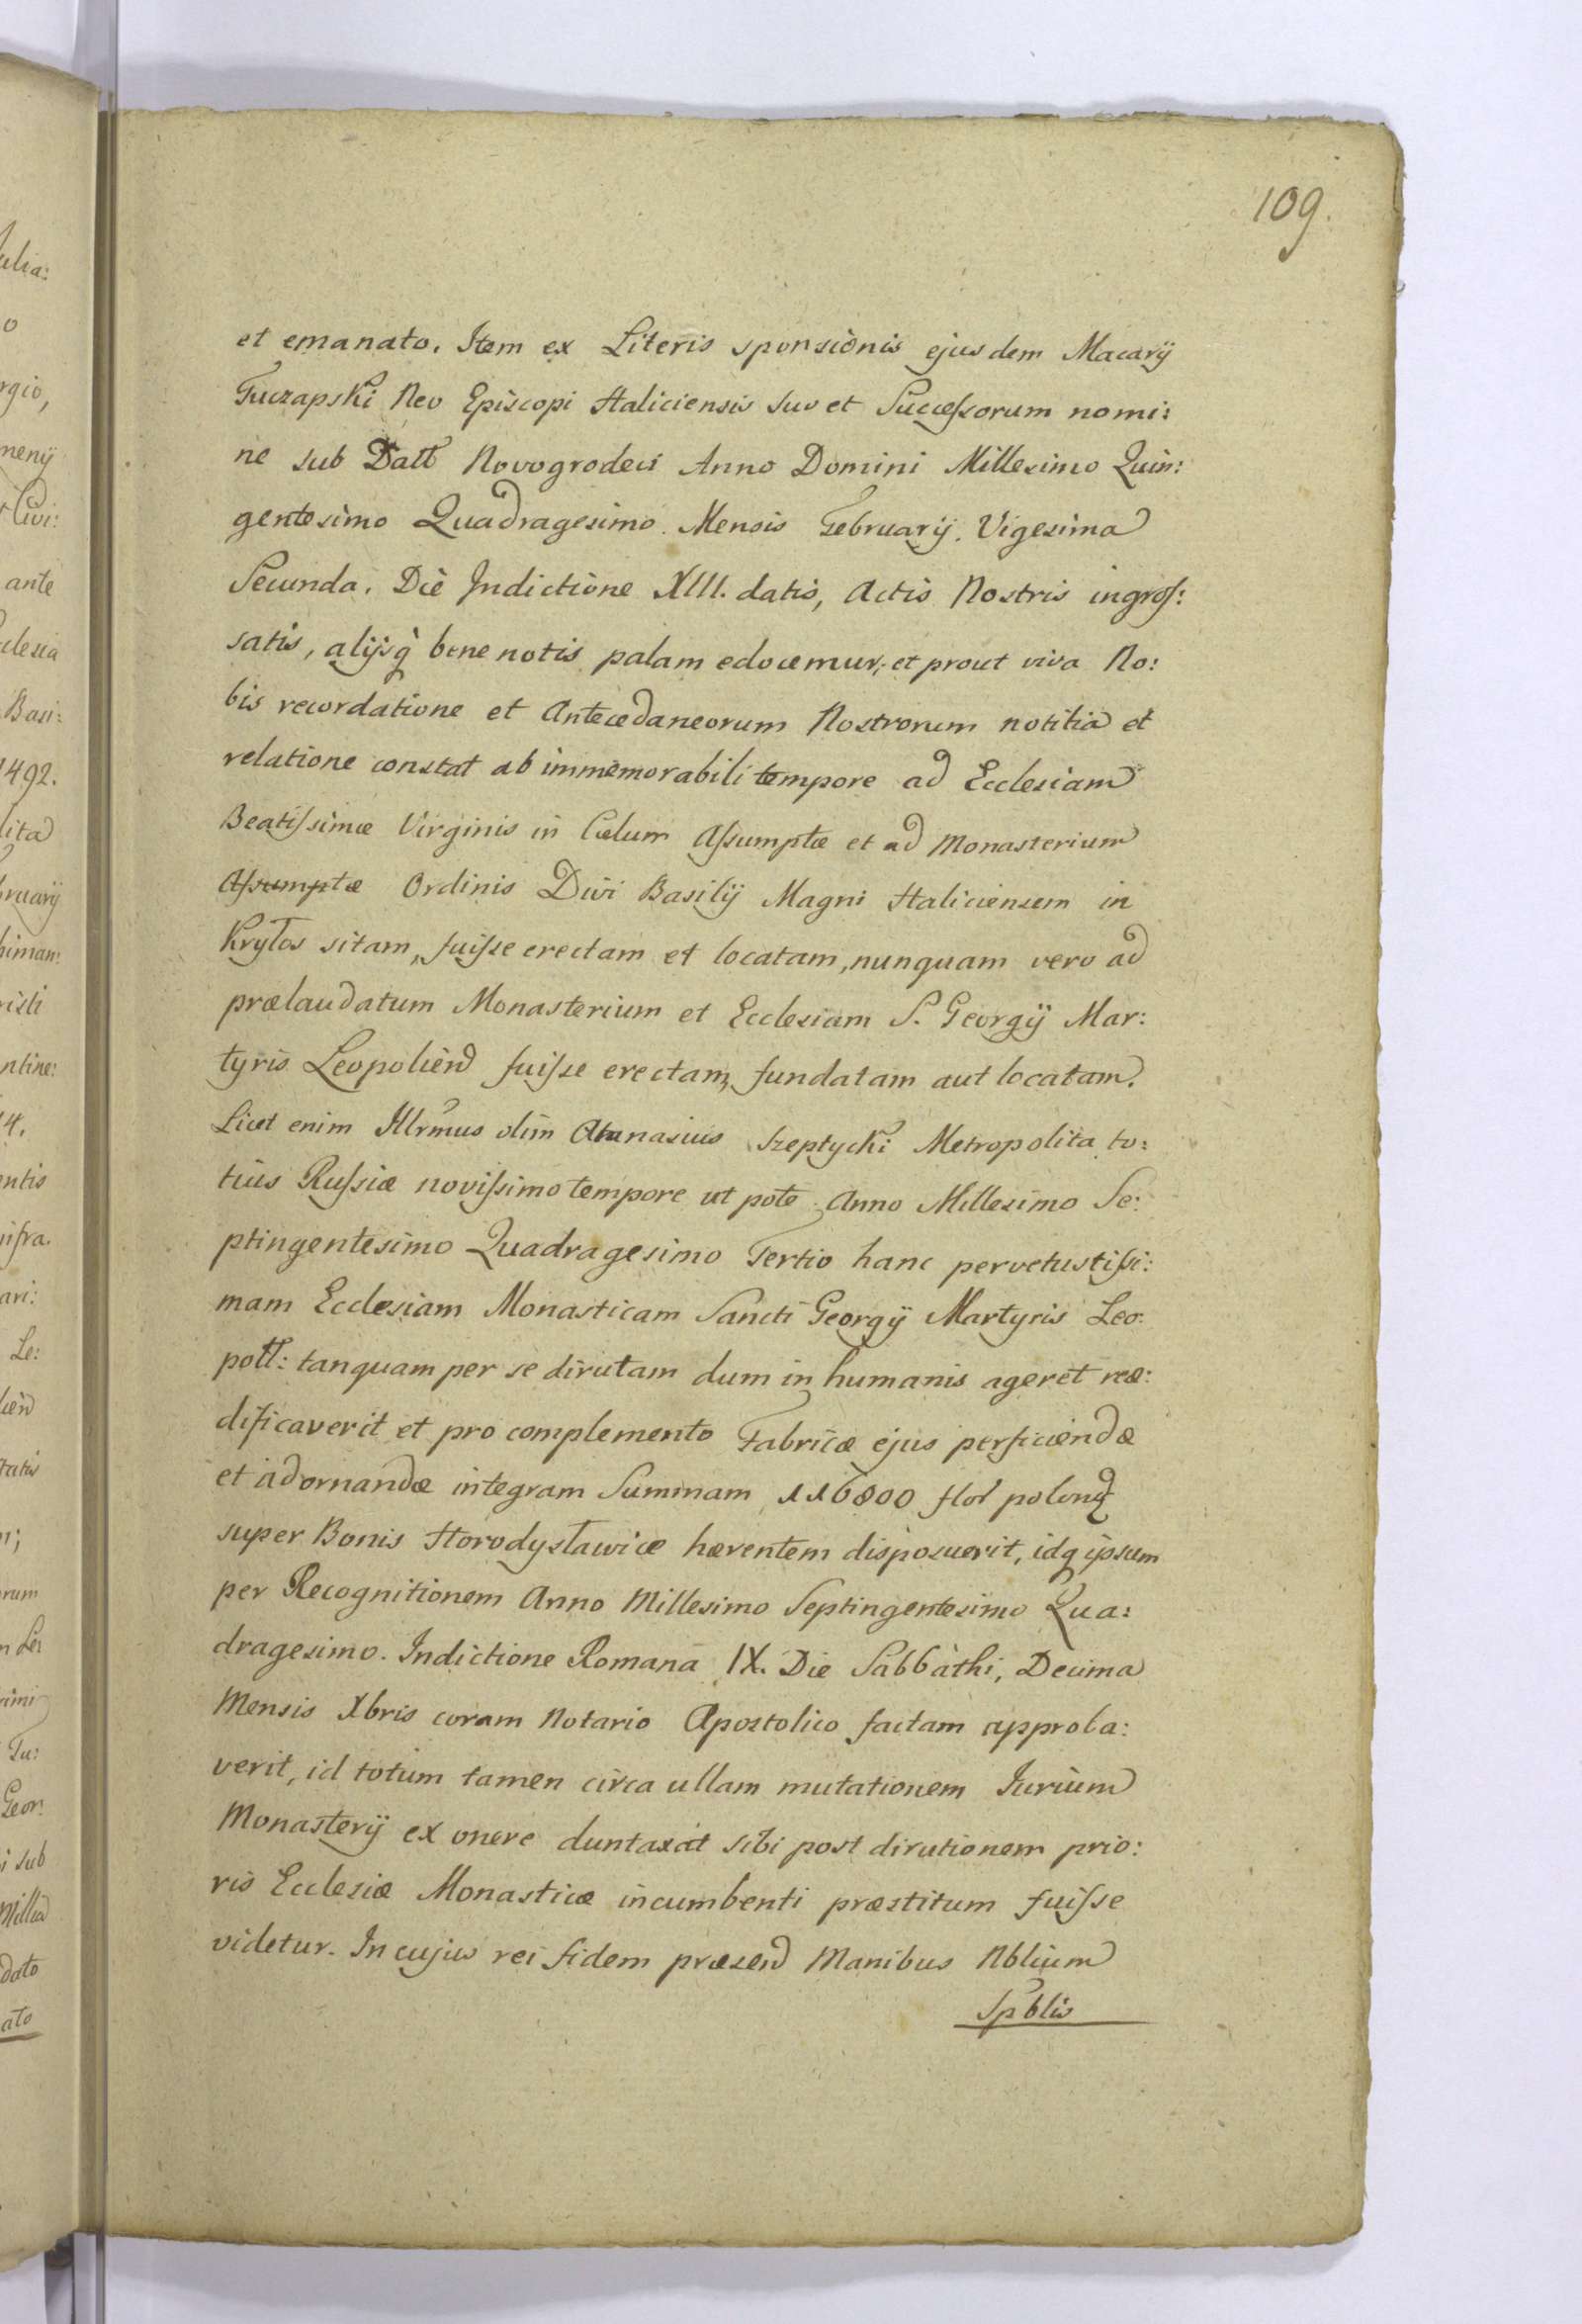 109.
et emanato. Item ex Literis sponsionis ejusdem Macarÿ
Tuczapski Neo Episcopi Haliciensis suo et Successorum nomi:
ne sub Datt Novogrodeci Anno Domini Millesimo Quin:
gentesimo Quadragesimo. Mensis Februarÿ. Vigesima
Secunda. Die Indictione XIII. datis, Actis Nostris ingros:
satis, alÿsq bene notis palam edocemur, et prout viva No:
bis recordatione et Antecedaneorum Nostrorum notitia et
relatione constat ab immemorabili tempore ad Ecclesiam
Beatissimæ Virginis in Cælum Assumptæ et ad Monasterium
Assumptæ Ordinis Divi Basilÿ Magni Haliciensem in
Kryłos sitam, fuisse erectam et locatam, nunquam vero ad
prælaudatum Monasterium et Ecclesiam S. Georgÿ Mar:
tyris Leopoliend fuisse erectam, fundatam aut locatam.
Licet enim Illrmus olim Atanasius Szeptycki Metropolita to:
tius Russiæ novissimo tempore ut pote Anno Millesimo Se:
ptingentesimo Quadragesimo Tertio hanc pervetustissi:
mam Ecclesiam Monasticam Sancti Georgÿ Martyris Leo:
poll: tanquam per se dirutam dum in humanis ageret reæ:
dificaverit et pro complemento Fabricæ ejus perficiendæ
et adornandæ integram Summam 116800 flor polonq
super Bonis Horodysławice hærentem disposuerit, idq ipsum
per Recognitionem Anno Millesimo Septingentesimo Qua:
dragesimo. Indictione Romana IX. Die Sabbathi, Decima
Mensis Xbris coram Notario Apostolico factam approba:
verit, id totum tamen circa ullam mutationem Jurium
Monasterÿ ex onere duntaxat sibi post dirutionem prio:
ris Ecclesiæ Monasticæ incumbenti præstitum fuisse
videtur. In cujus rei fidem præsend Manibus Nblium
Spblis